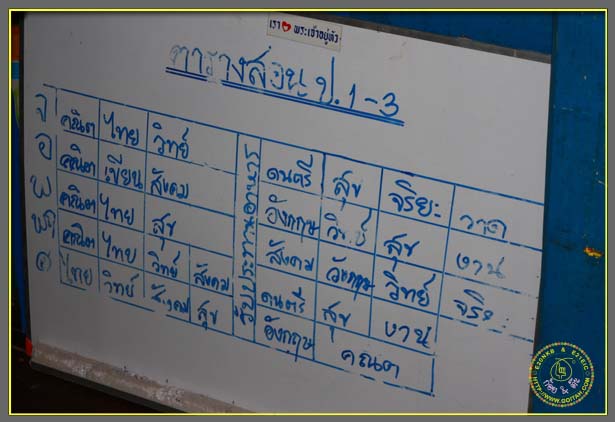 เรา ❤ พระเจ้าอยู่หัว
ตารางสอน ป.1-3
จ คณิต ไทย วิทย์ รับประทานอาหาร ดนตรี สุข จริยะ วาด
อ คณิต เขียน สังคม อังกฤษ วิทย์ สุข งาน
พ คณิต ไทย สุข สังคม อังกฤษ วิทย์ จริย
พฤ คณิต ไทย วิทย์ สังคม ดนตรี สุข งาน
ศ ไทย วิทย์ สังคม สุข อังกฤษ คณิต
E20NKB & E21EIC
ก้อย &
HTTP://WWW.GOITAH.COM